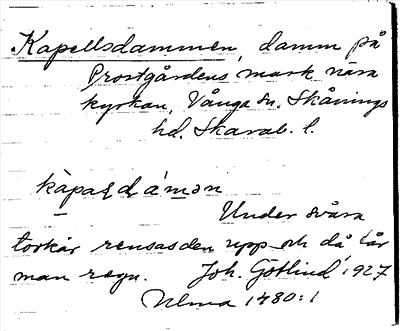 Kapellsdammen, damm på
Prostgårdens mark nära
kyrkan, Vånga sn. Skånings
hd. Skarab. l.
kàpaldámən
Under svåra
torkår rensas den upp och då får
man regn. Joh. Götlind 1927
Ulma 1480:1